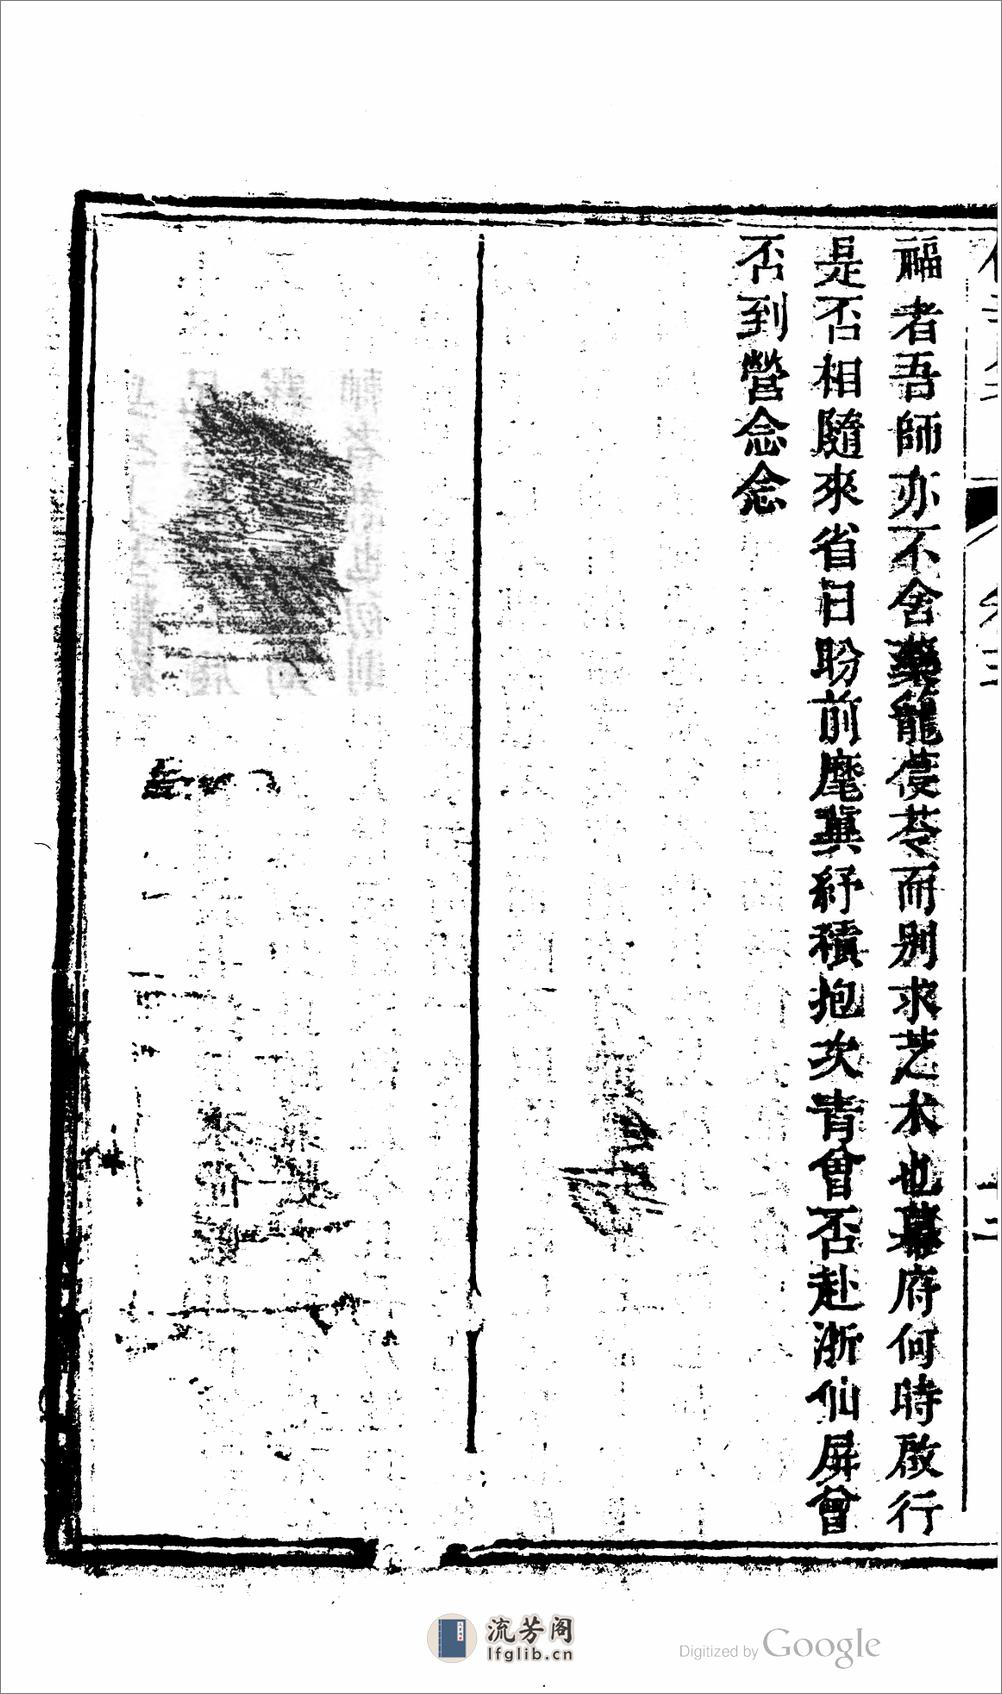 福者吾師亦不舍藥籠蓡苓而別求芝朮也幕府何時啟行
是否相隨來省日盼前麾冀紓積抱次青曾否赴浙仙屏曾
否到營念念
流芳阁
lfglib.cn
Digitized by Google